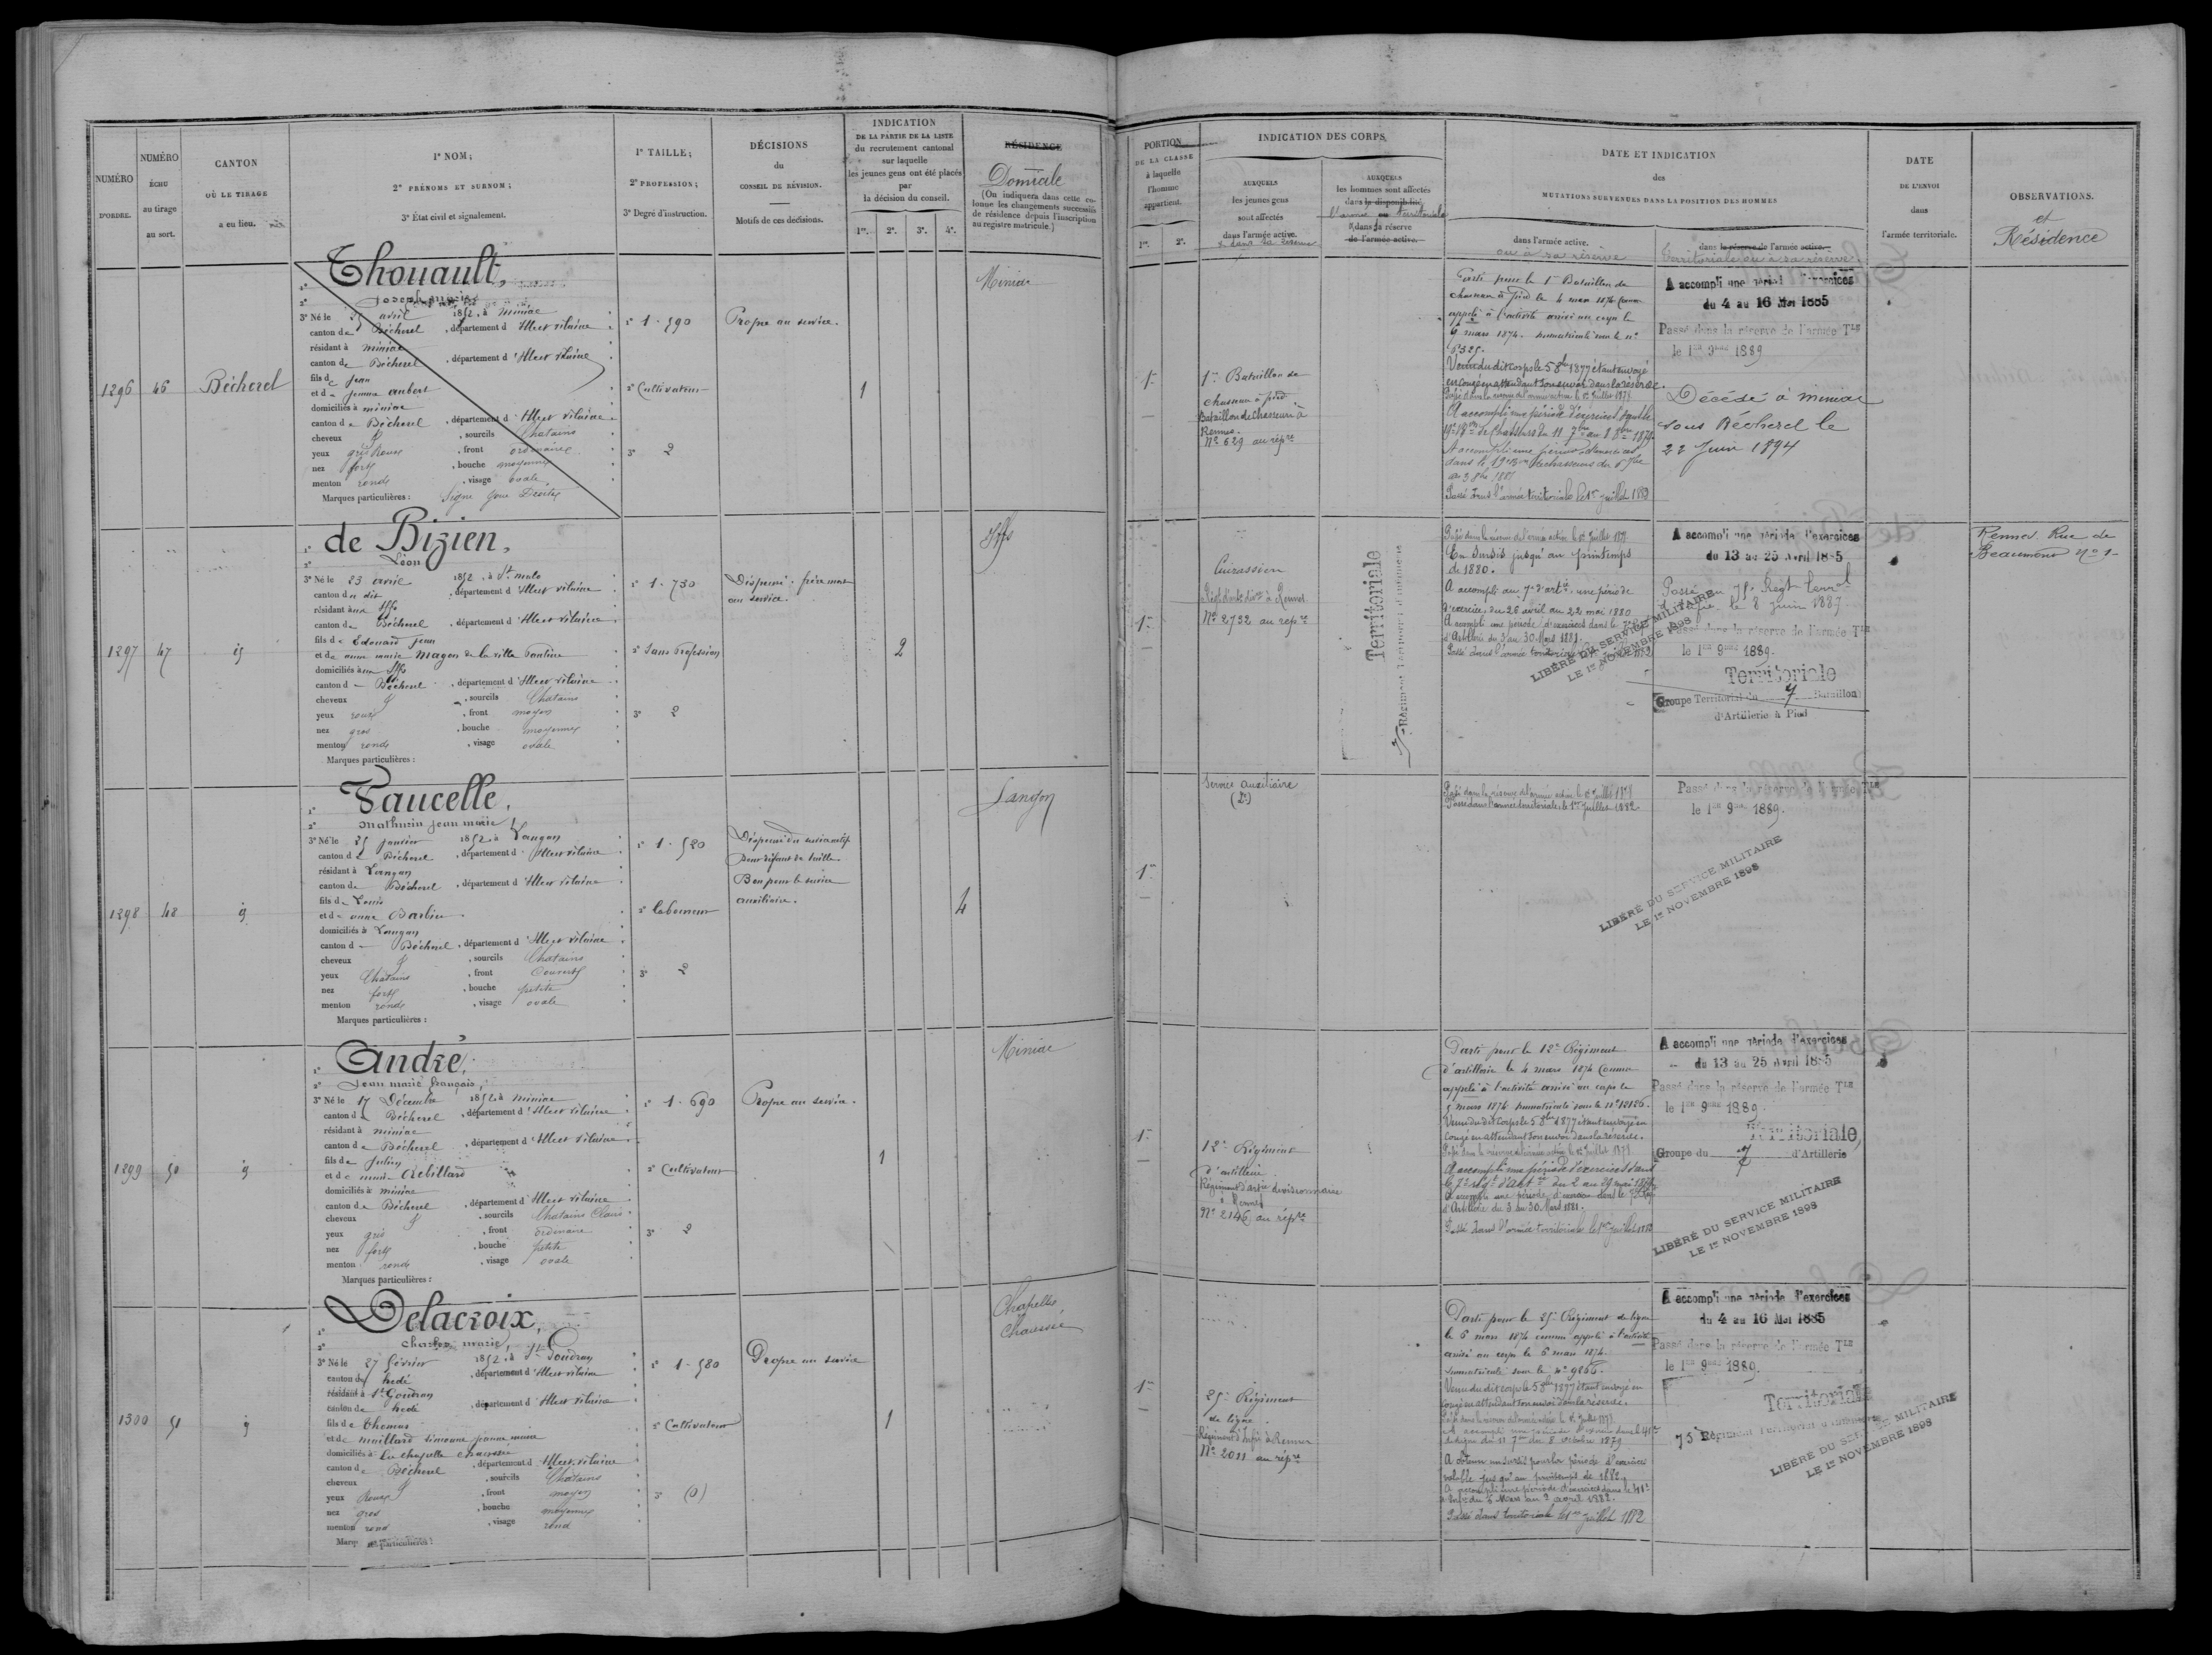 NUMÉRO
D'ORDRE.
NUMÉRO
ÉCHU
au tirage
au sort.
CANTON
OÙ LE TIRAGE
a eu lieu.
1° NOM;
2° PRÉNOMS ET SURNOM;
3° État civil et signalement.
1° TAILLE;
2° PROFESSION;
3° Degré d'instruction.
DÉCISIONS
du
CONSEIL DE RÉVISION.
Motifs de ces décisions.
INDICATION
DE LA PARTIE DE LA LISTE
du recrutement cantonal
sur laquelle
les jeunes gens ont été placés
par
la décision du conseil.
1re. 2e. 3e. 4e.
RÉSIDENCE
Domicile
(On indiquera dans cette colonne
les changements successifs
de résidence depuis l'inscription
au registre matricule.)
1296
46
Bécherel
1° Thouault,
2° Joseph marie
3° Né le 25 avril 1852, à Miniac
canton de Bécherel, département d'Ille et Vilaine
résidant à miniac
canton de Bécherel, département d'Ille et Vilaine
fils de Jean
et de Jeanne aubert
domiciliés à miniac
canton de Bécherel, département d'Ille et Vilaine
cheveux d°, sourcils Chatains
yeux gris Roux, front ordinaire
nez fort, bouche moyenne
menton rond, visage ovale
Marques particulières : Signe joue Droite
1° 1.590
2° Cultivateur
3° 2
Propre au service.
1
Miniac
1297
47
id
1° de Bizien,
2° Léon
3° Né le 23 avril 1852, à St malo
canton du dit, département d'Ille et Vilaine
résidant aux Iffs
canton de Bécherel, département d'Ille et Vilaine
fils de Edouard Jean
et de anne marie Magon de la ville
domiciliés aux Iffs
canton de Bécherel, département d'Ille et Vilaine
cheveux d°, sourcils Chatains
yeux roux, front moyen
nez gros, bouche moyenne
menton rond, visage ovale
Marques particulières :
1° 1.730
2° Sans Profession
3° 2
Dispensé : frère mort
au service.
2
Iffs
1298
48
id
1° Faucelle,
2° Mathurin Jean marie
3° Né le 25 Janvier 1852, à Langan
canton de Bécherel, département d'Ille et Vilaine
résidant à Langan
canton de Bécherel, département d'Ille et Vilaine
fils de Louis
et de anne Barbier
domiciliés à Langan
canton de Bécherel, département d'Ille et Vilaine
cheveux d°, sourcils Chatains
yeux Chatains, front Couvert
nez fort, bouche petite
menton rond, visage ovale
Marques particulières :
1° 1.520
2° laboureur
3° 2
Dispensé du service actif
pour défaut de taille.
Bon pour le service
auxiliaire.
4
Langan
1299
50
id
1° André,
2° Jean marie françois,
3° Né le 17 Décembre 1852, à miniac
canton de Bécherel, département d'Ille et Vilaine
résidant à miniac
canton de Bécherel, département d'Ille et Vilaine
fils de Julien
et de marie Rebillard
domiciliés à miniac
canton de Bécherel, département d'Ille et Vilaine
cheveux d°, sourcils Chatains Clairs
yeux gris, front ordinaire
nez fort, bouche petite
menton rond, visage ovale
Marques particulières :
1° 1.690
2° Cultivateur
3° 2
Propre au service.
1
Miniac
1300
51
id
1° Delacroix,
2° Charles marie,
3° Né le 27 février 1852, à St Gondran
canton de hédé, département d'Ille et Vilaine
résidant à St Gondran
canton de hédé, département d'Ille et Vilaine
fils de Thomas
et de maillard Simonne Jeanne marie
domiciliés à La chapelle chaussée
canton de Bécherel, département d'Ille et Vilaine
cheveux d°, sourcils Chatains
yeux Roux, front moyen
nez gros, bouche moyenne
menton rond, visage rond
Marques particulières :
1° 1.580
2° Cultivateur
3° (0)
Propre au service
1
Chapelle
Chaussée
PORTION
DE LA CLASSE
à laquelle
l'homme
appartient.
1re. 2e.
INDICATION DES CORPS,
AUXQUELS
les jeunes gens
sont affectés
dans l'armée active.
& dans sa réserve
AUXQUELS
les hommes sont affectés
dans la disponibilité,
l'armée territoriale
& dans sa réserve
de l'armée active.
DATE ET INDICATION
des
MUTATIONS SURVENUES DANS LA POSITION DES HOMMES
dans l'armée active.
ou à sa réserve
dans la réserve de l'armée active.
Territoriale ou à sa réserve
DATE
DE L'ENVOI
dans
l'armée territoriale.
OBSERVATIONS.
et
Résidence
1re
1er Bataillon de
chasseurs à pied
Bataillon de Chasseurs à
Rennes.
N° 629 au répre
Parti pour le 1er Bataillon de
chasseurs à pied le 4 mars 1874 comme
appelé à l'activité arrivé au corps le
6 mars 1874. immatriculé sous le n°
6325.
Venu du dit corps le 5 8bre 1877 étant envoyé
en congé en attendant son envoi dans la réserve.
Passé dans la réserve de l'armée active le 1er Juillet 1878.
A accompli une période d'exercices dans le
19e Bon de Chasseurs du 11 7bre au 8 8bre 1879
A accompli une période d'exercices
dans le 19e Bon de chasseurs du 6 7bre
au 3 8bre 1881
Passé dans l'armée territoriale le 1er juillet 1882
A accompli une période d'exercices
du 4 au 16 Mai 1885
Passé dans la réserve de l'armée Tle
le 1er 9bre 1889
Décédé à miniac
sous Bécherel le
22 Juin 1894
1re
Cuirassiers
Régt d'artie divre à Rennes
N° 2722 au répre
Territoriale
Régiment Territorial d'Infanterie
Passé dans la réserve de l'armée active le 1er Juillet 1878
En sursis jusqu'au printemps
de 1880.
A accompli au 7e d'artie une période
d'exercices du 26 avril au 22 mai 1880
A accompli une période d'exercices dans le 7e Régt
d'Artillerie du 3 au 30 Mars 1881.
Passé dans l'armée territoriale le 1er juillet 1882
A accompli une période d'exercices
du 13 au 25 Avril 1885
Passé au 75e Régt terral
d'Infie, le 8 juin 1887.
Passé dans la réserve de l'armée Tle
le 1er 9bre 1889.
LIBÉRÉ DU SERVICE MILITAIRE
LE 1er NOVEMBRE 1898
Territoriale
Groupe Territorial du 7 Bataillon
d'Artillerie à Pied
Rennes. Rue de
Beaumont N° 1
1re
Service auxiliaire
Passé dans la réserve de l'armée active le 1er Juillet 1878
Passé dans l'armée territoriale le 1er Juillet 1882.
Passé dans la réserve de l'armée Tle
le 1er 9bre 1889.
LIBÉRÉ DU SERVICE MILITAIRE
LE 1er NOVEMBRE 1898
1re
12e Régiment
d'artillerie
Régiment d'artie divisionnaire
à Rennes
N° 2146 au répre
Parti pour le 12e Régiment
d'artillerie le 4 mars 1874 Comme
appelé à l'activité arrivé au corps le
5 mars 1874 immatriculé sous le n° 12126.
Venu du dit corps le 5 8bre 1877 étant envoyé en
congé en attendant son envoi dans la réserve.
Passé dans la réserve de l'armée active le 1er Juillet 1878.
A accompli une période d'exercices dans
le 7e régt d'artie du 2 au 29 mai 1879
A accompli une période d'exercices dans le 7e Régt
d'Artillerie du 3 au 30 Mars 1881.
Passé dans l'armée territoriale le 1er juillet 1882
A accompli une période d'exercices
du 13 au 25 Avril 1885
Passé dans la réserve de l'armée Tle
le 1er 9bre 1889.
Territoriale
Groupe du 7 d'Artillerie
LIBÉRÉ DU SERVICE MILITAIRE
LE 1er NOVEMBRE 1898
1re
25e Régiment
de ligne.
Régiment d'Infie à Rennes
N° 2011 au répre
Parti pour le 25e Régiment de ligne
le 6 mars 1874 comme appelé à l'activité
arrivé au corps le 6 mars 1874.
immatriculé sous le n° 9866.
Venu du dit corps le 5 8bre 1877 étant envoyé en
congé en attendant son envoi dans la réserve.
Passé dans la réserve de l'armée active le 1er Juillet 1878
A accompli une période d'exercices dans le 41e
de ligne du 11 7bre au 8 octobre 1879
A obtenu un sursis pour la période d'exercices
valable jusqu'au printemps de 1882
A accompli une période d'exercices dans le 41e
d'Infie du 6 Mars au 2 avril 1882.
Passé dans territoriale le 1er juillet 1882
A accompli une période d'exercices
du 4 au 16 Mai 1885
Passé dans la réserve de l'armée Tle
le 1er 9bre 1889.
Territoriale
75 Régiment Territorial d'Infanterie
LIBÉRÉ DU SERVICE MILITAIRE
LE 1er NOVEMBRE 1898